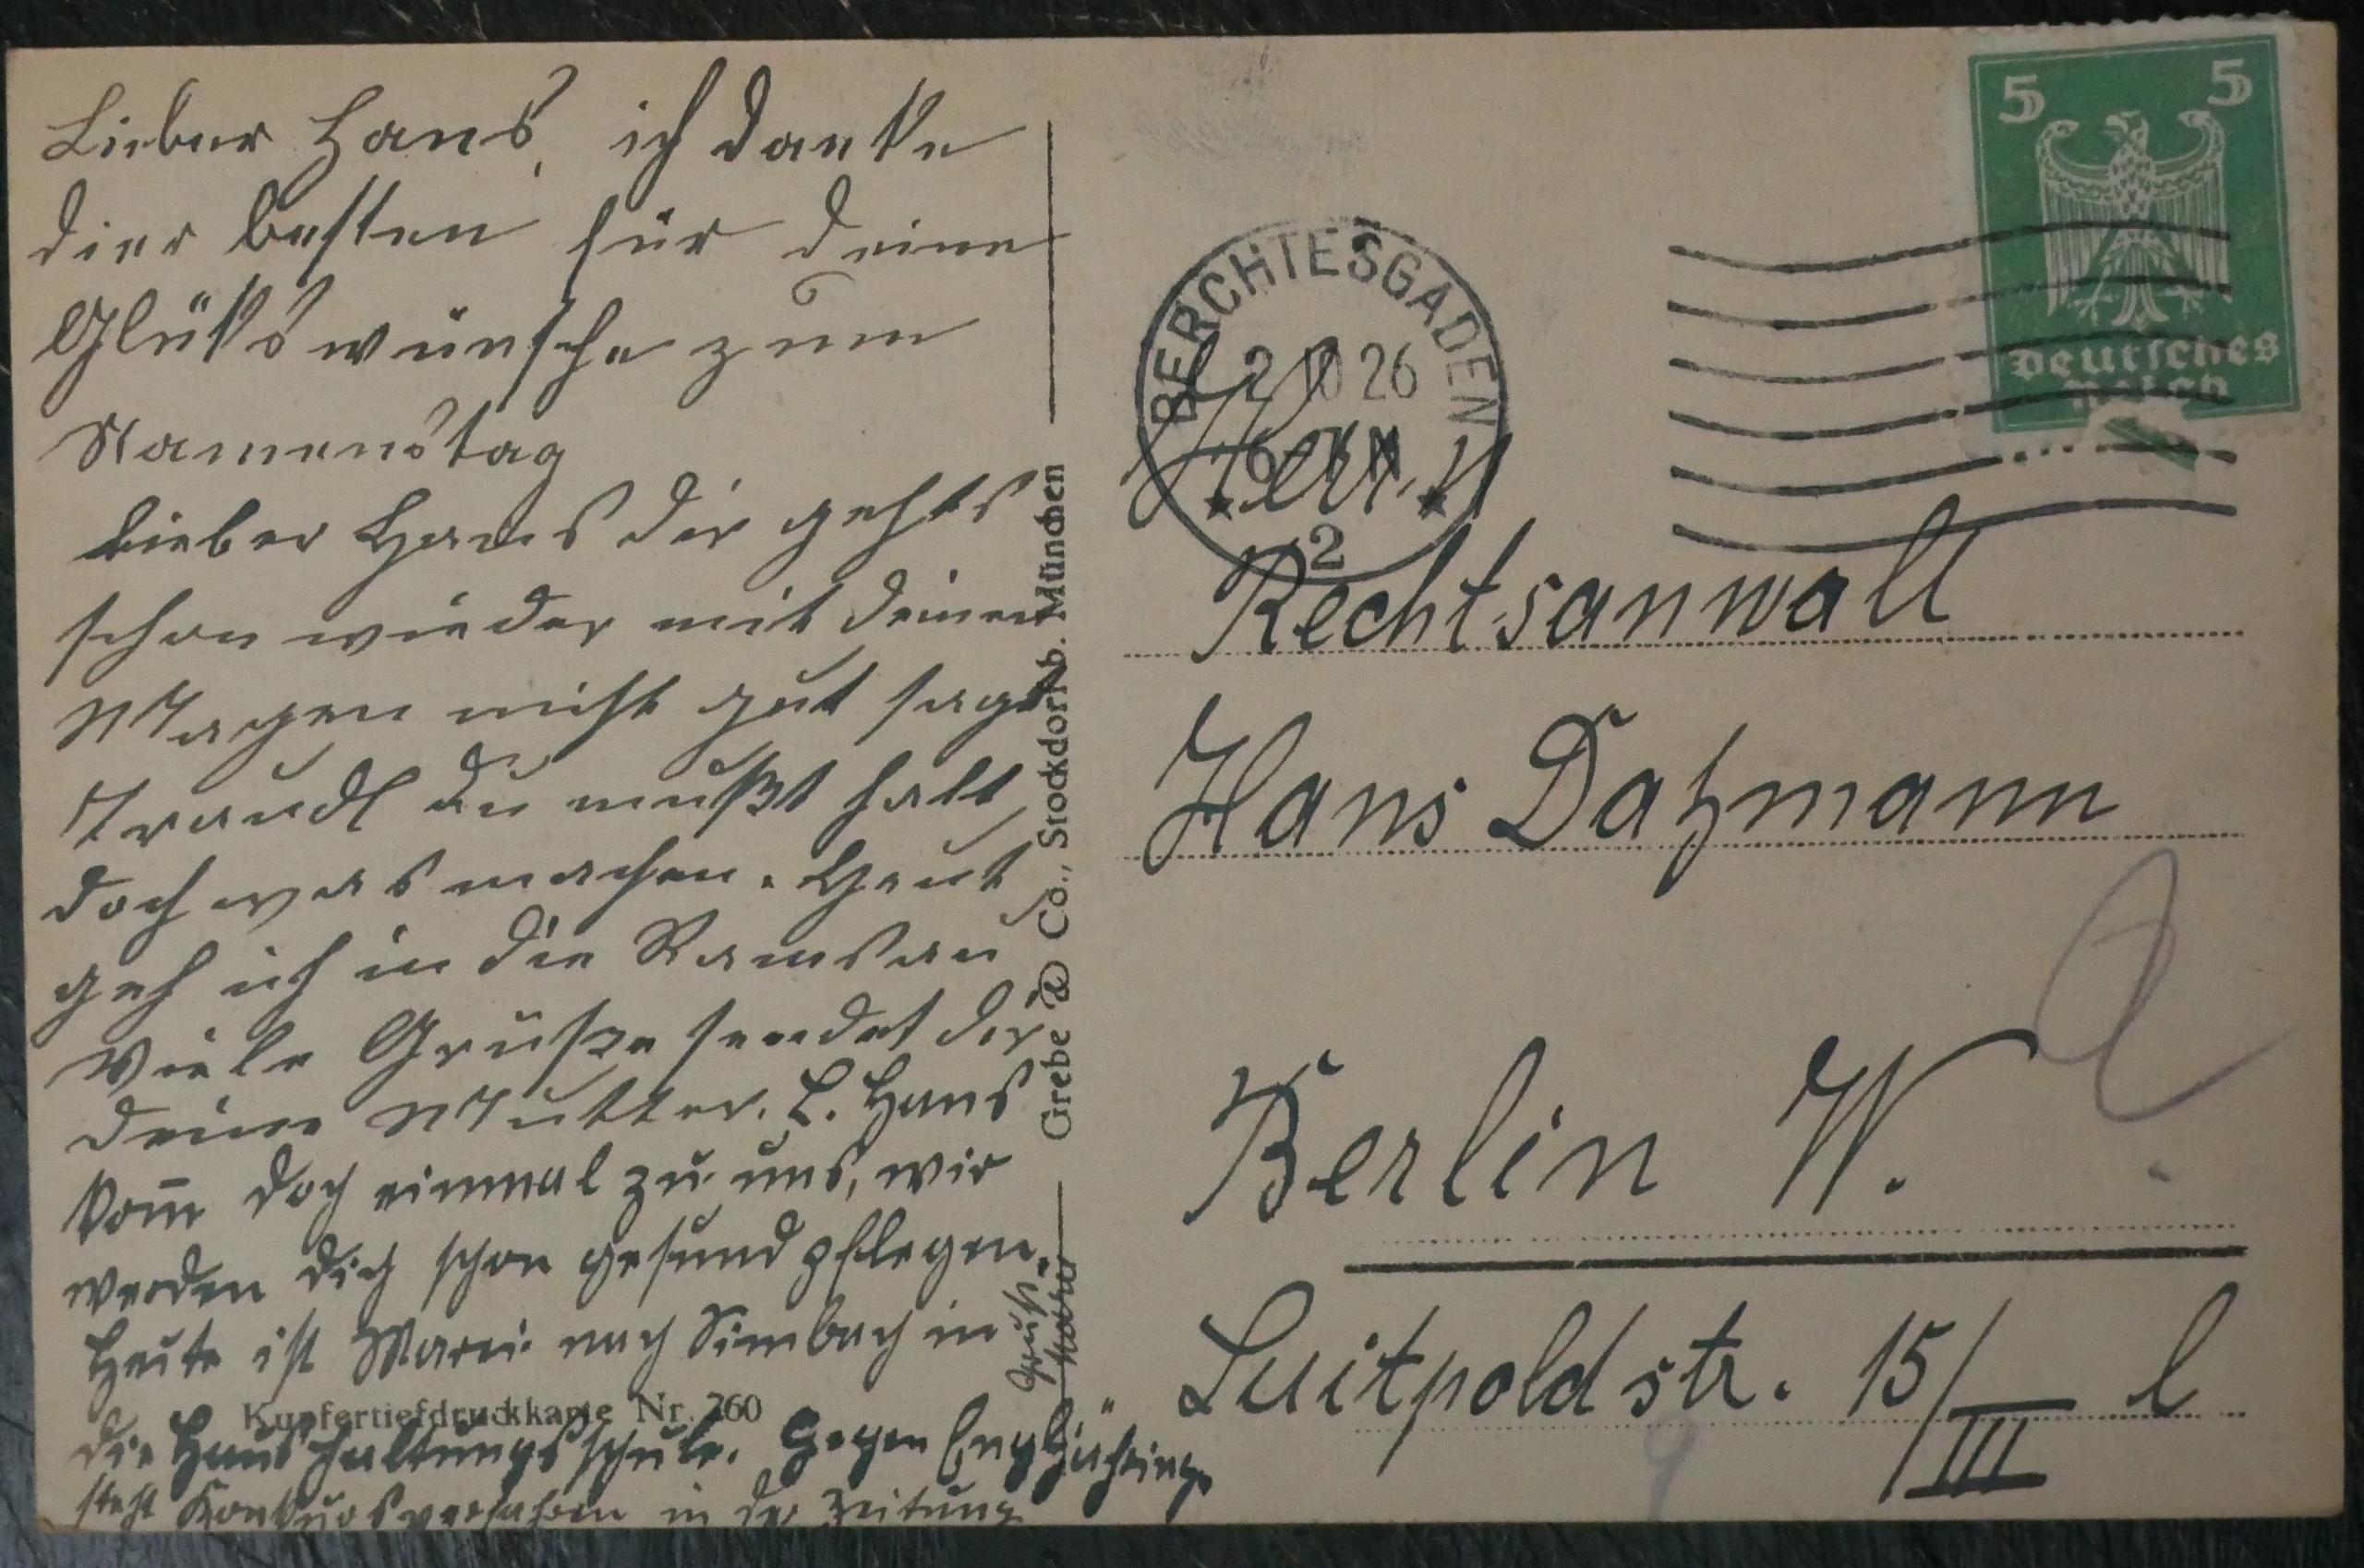 Lieber Hans, ich danke
dier besten für deine
Glüks wünsche zum
Namenstag
Lieber Hans dir gehts
schon wieder mit deinen
Magen nicht gut sagt
Traudl du mußt halt
doch was machen. Heut
geh ich in die Ramsau
Viele Grüße sendet dir
deine Mutter. L. Hans
kom̅ doch einmal zu uns, wir
werden dich schon gesund pflegen.
Heute ist Marei nach Simbach in
die Haushaltungsschule. Gegen
steht Konkursverfahren in der Zeitung
Gruß
Kupfertiefdruckkarte Nr. 260
Grebe & Co., Stockdorf b. München
5 5
Deutsches
Reich
BERCHTESGADEN
2 10 26
6-7 N
2
Herrn
Rechtsanwalt
Hans Dazmann
Berlin W.
Luitpoldstr. 15/III l